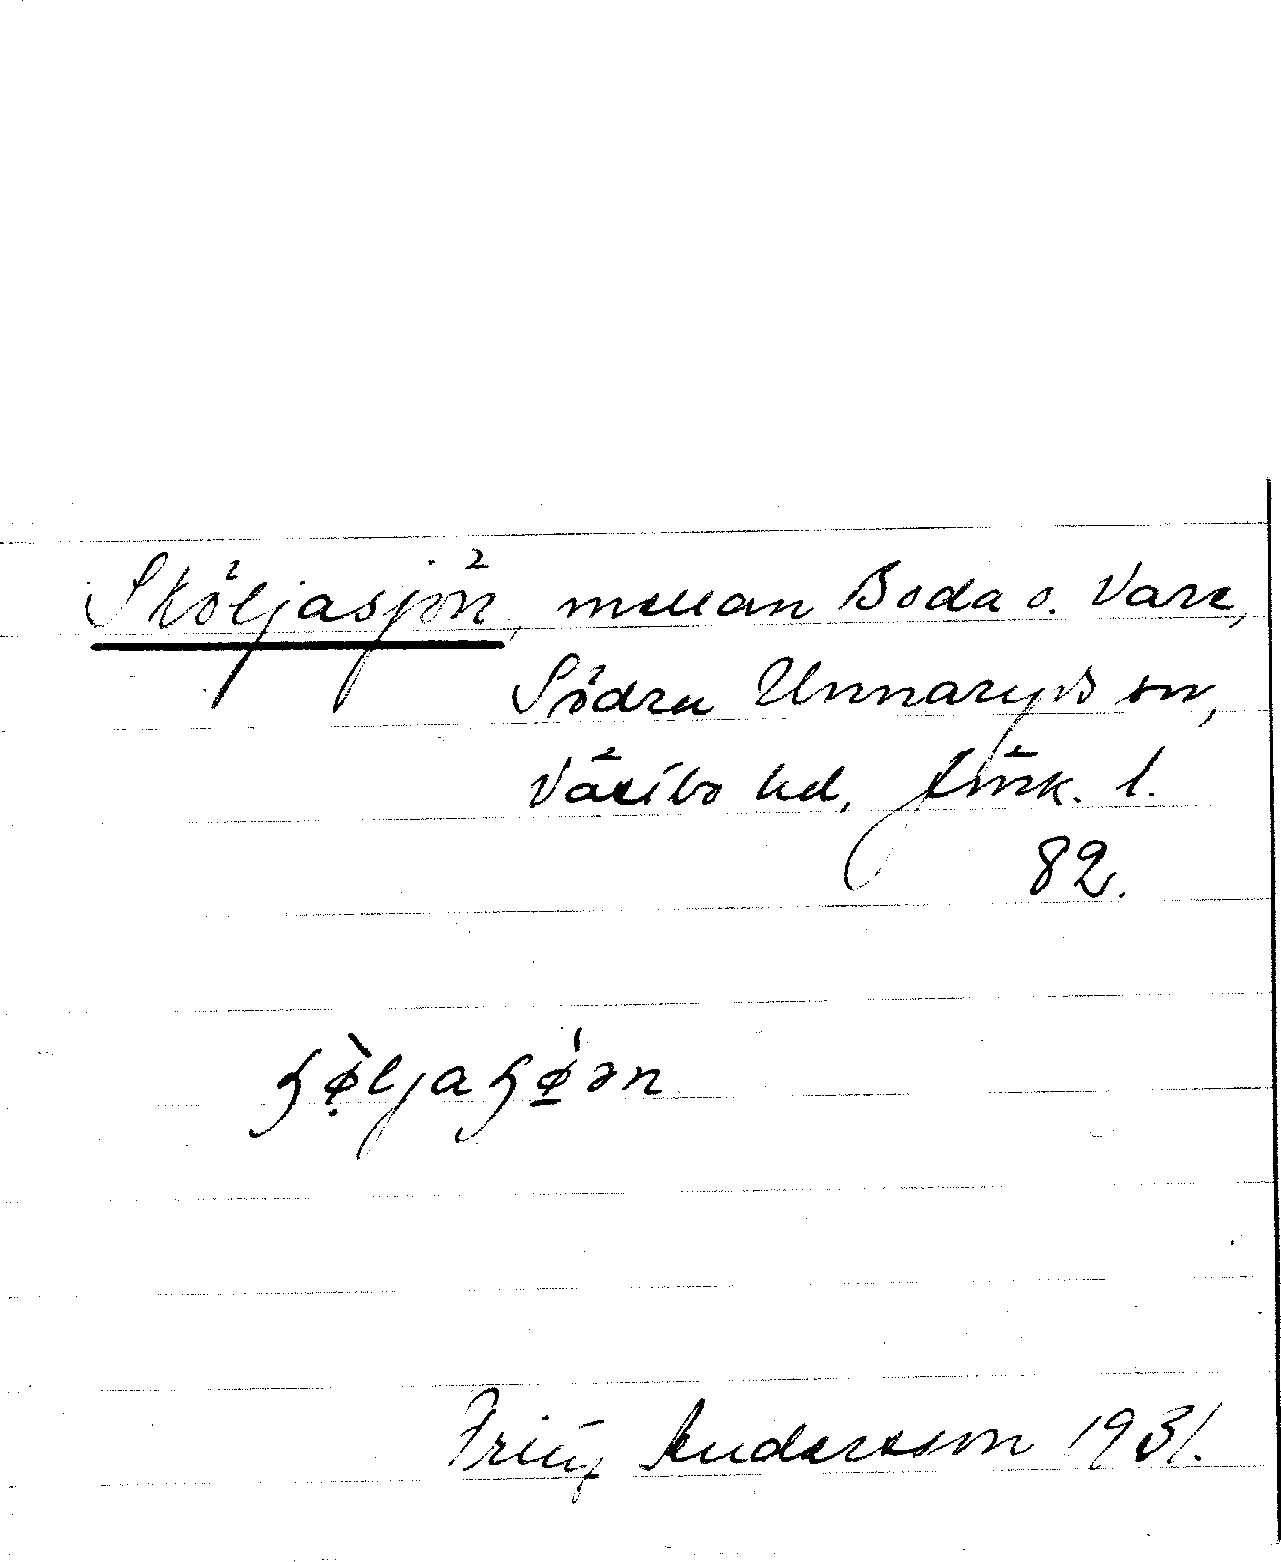 Sköljasjön, mellan Boda o. Vare,
Södra Unnaryds sn,
Västbo hd, Jönk. l.
82.
Fritz Andersson 1931.